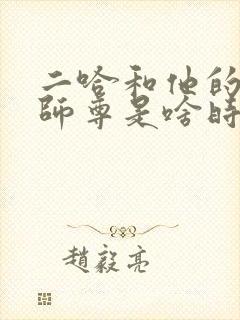 二哈和他的
師尊是啥時
趙毅亮